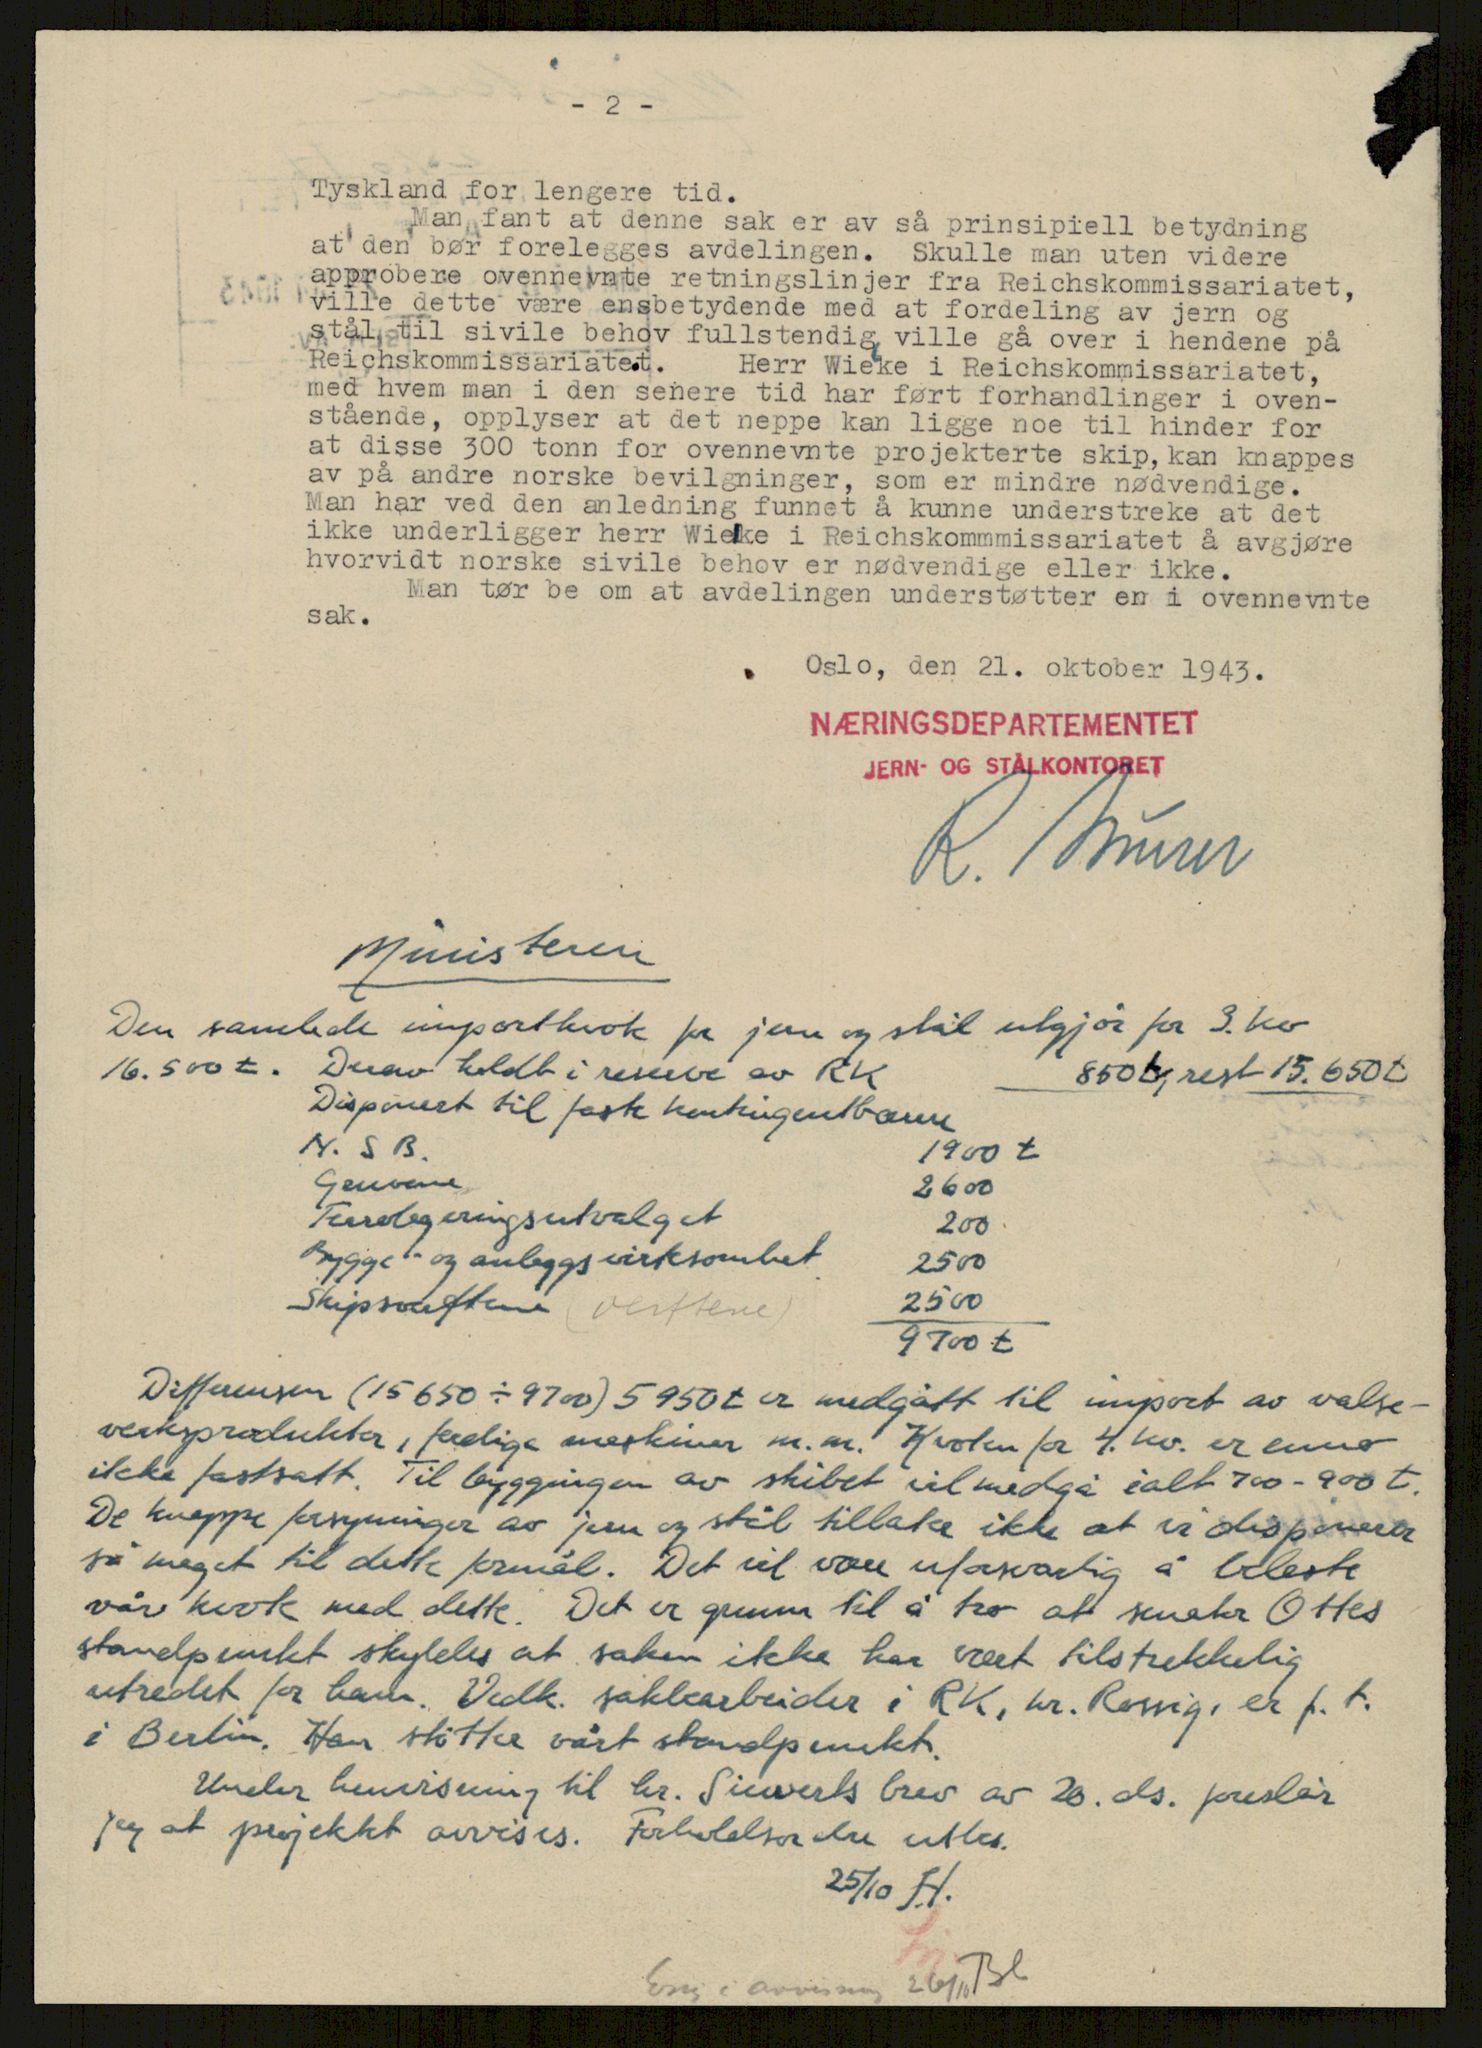 - 2 -
Tyskland for lengere tid.
Man fant at denne sak er av så prinsipiell betydning
at den bør forelegges avdelingen. Skulle man uten videre
approbere ovennevnte retningslinjer fra Reichskommissariatet,
ville dette være ensbetydende med at fordeling av jern og
stål til sivile behov fullstendig ville gå over i hendene på
Reichskommissariatet. Herr Wieke i Reichskommissariatet,
med hvem man i den senere tid har ført forhandlinger i oven-
stående, opplyser at det neppe kan ligge noe til hinder for
at disse 300 tonn for ovennevnte projekterte skip, kan knappes
av på andre norske bevilgninger, som er mindre nødvendige.
Man har ved den anledning funnet å kunne understreke at det
ikke underligger herr Wieke i Reichskommmissariatet å avgjøre
hvorvidt norske sivile behov er nødvendige eller ikke.
Man tør be om at avdelingen understøtter en i ovennevnte
sak.
Oslo, den 21. oktober 1943.
NÆRINGSDEPARTEMENTET
JERN- OG STÅLKONTORET
R.
Ministeren
Den samlede importkvote for jern og stål utgjør for 3. kv
16.500 t. Derav holdt i reserve av RK 850 t, rest 15.650 t
Disponert til faste kontingentbærere
N. S B. 1900 t
Gruvene 2600
Ferrolegeringsutvalget 200
Bygge- og anleggsvirksomhet 2500
Skipsverftene (verftene) 2500
9700 t
Differensen (15650 ÷ 9700) 5950 t er medgått til import av valse-
verksprodukter, ferdige maskiner m.m. Kvoten for 4. kv. er ennå
ikke fastsatt. Til byggingen av skibet vil medgå ialt 700-900 t.
De knappe forsyninger av jern og stål tillater ikke at vi disponerer
så meget til dette formål. Det vil være uforsvarlig å belaste
vår kvote med dette. Det er grunn til å tro at senator Ottes
standpunkt skyldes at saken ikke har vært tilstrekkelig
utredet for ham. Vedk. saksbearbeider i RK, hr. Rossig, er p. t.
i Berlin. Han støtter vårt standpunkt.
Under henvisning til hr. Sieverts brev av 20. ds. foreslår
jeg at projektet avvises. Forholdsordre utbes.
25/10 H.
Enig i avvisning 26/10 Bl